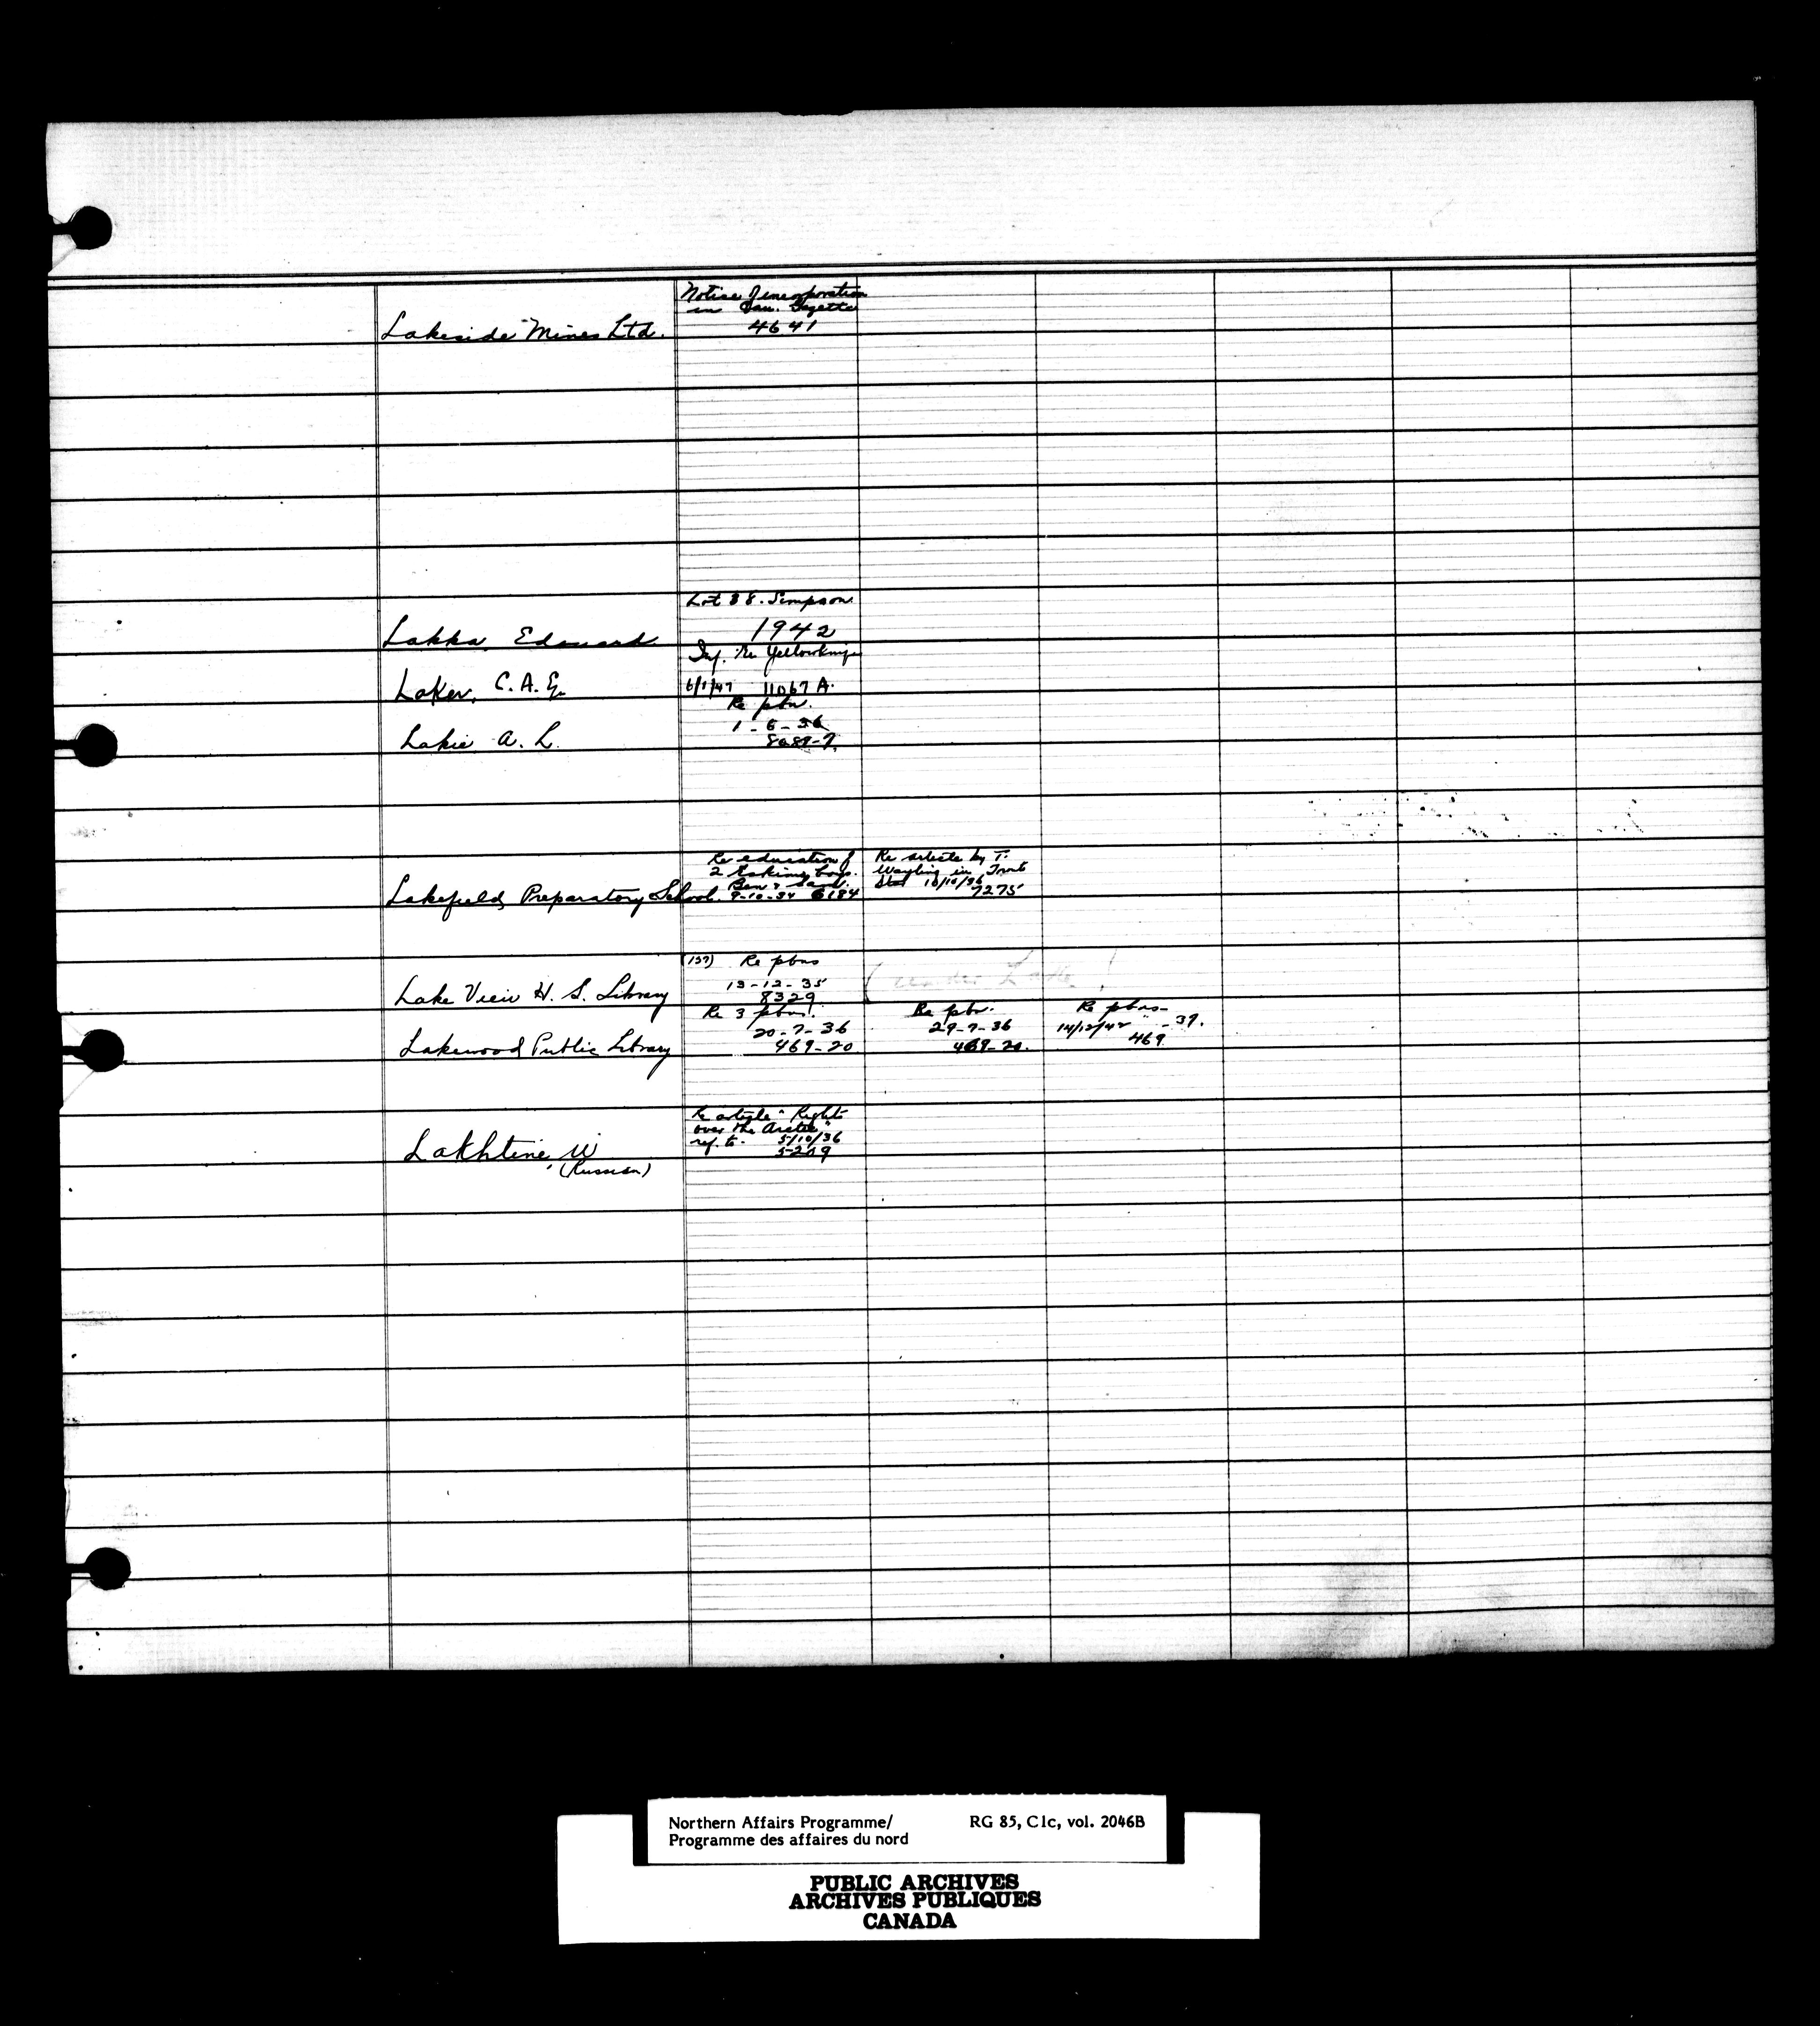 Notice of incorporation
in Can. Gazette
Lakeside Mines Ltd. 4641
Lot 38. Simpson
Lakka, Edouard 1942
Inf. re Yellowknife
Laker, C.A.E. 6/1/47 11067 A.
Re pbn.
1-6-36
Lakie A. L. 8089-7.
Re education of Re article by T.
2 Eskimo boys. Wayling in Tront
Ben & Saml. Star 10/10/36
Lakefield Preparatory School. 9-10-34 6184 7275
(157) Re pbns
13-12-35
Lake View H. S. Library 8329
Re 3 pbns. Re pbn. Re pbns-
20-7-36 29-7-36 14/12/42 -37.
Lakewood Public Library 469-20 469-20. 469
Re article "Rights
over the Arctic"
ref. to. 5/10/36
Lakhtine, W 5209
(Russian)
Northern Affairs Programme/ RG 85, C1c, vol. 2046B
Programme des affaires du nord
PUBLIC ARCHIVES
ARCHIVES PUBLIQUES
CANADA